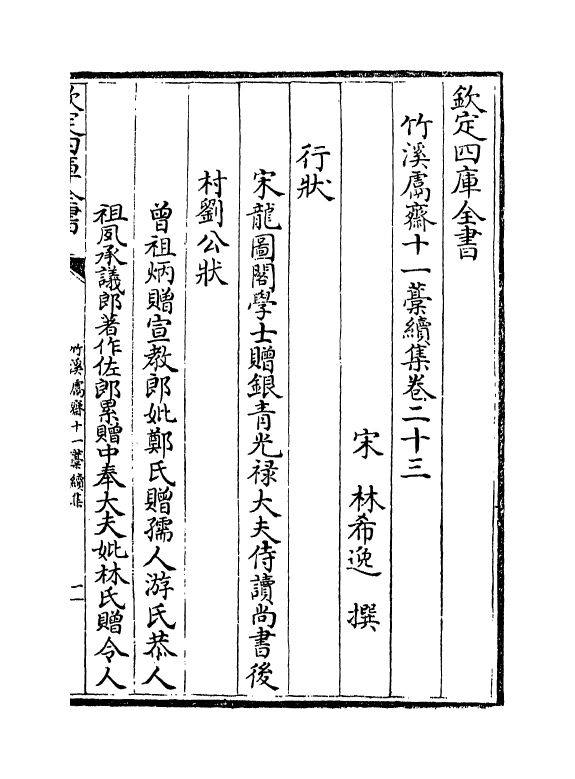 欽定四庫全書
竹溪鬳齋十一藁續集卷二十三
宋　林希逸　撰
行狀
宋龍圖閣學士贈銀青光禄大夫侍讀尚書後
村劉公狀
曾祖炳贈宣教郎妣鄭氏贈孺人游氏恭人
祖夙承議郎著作佐郎累贈中奉大夫妣林氏贈令人
欽定四庫全書
竹溪鬳齋十一藁續集